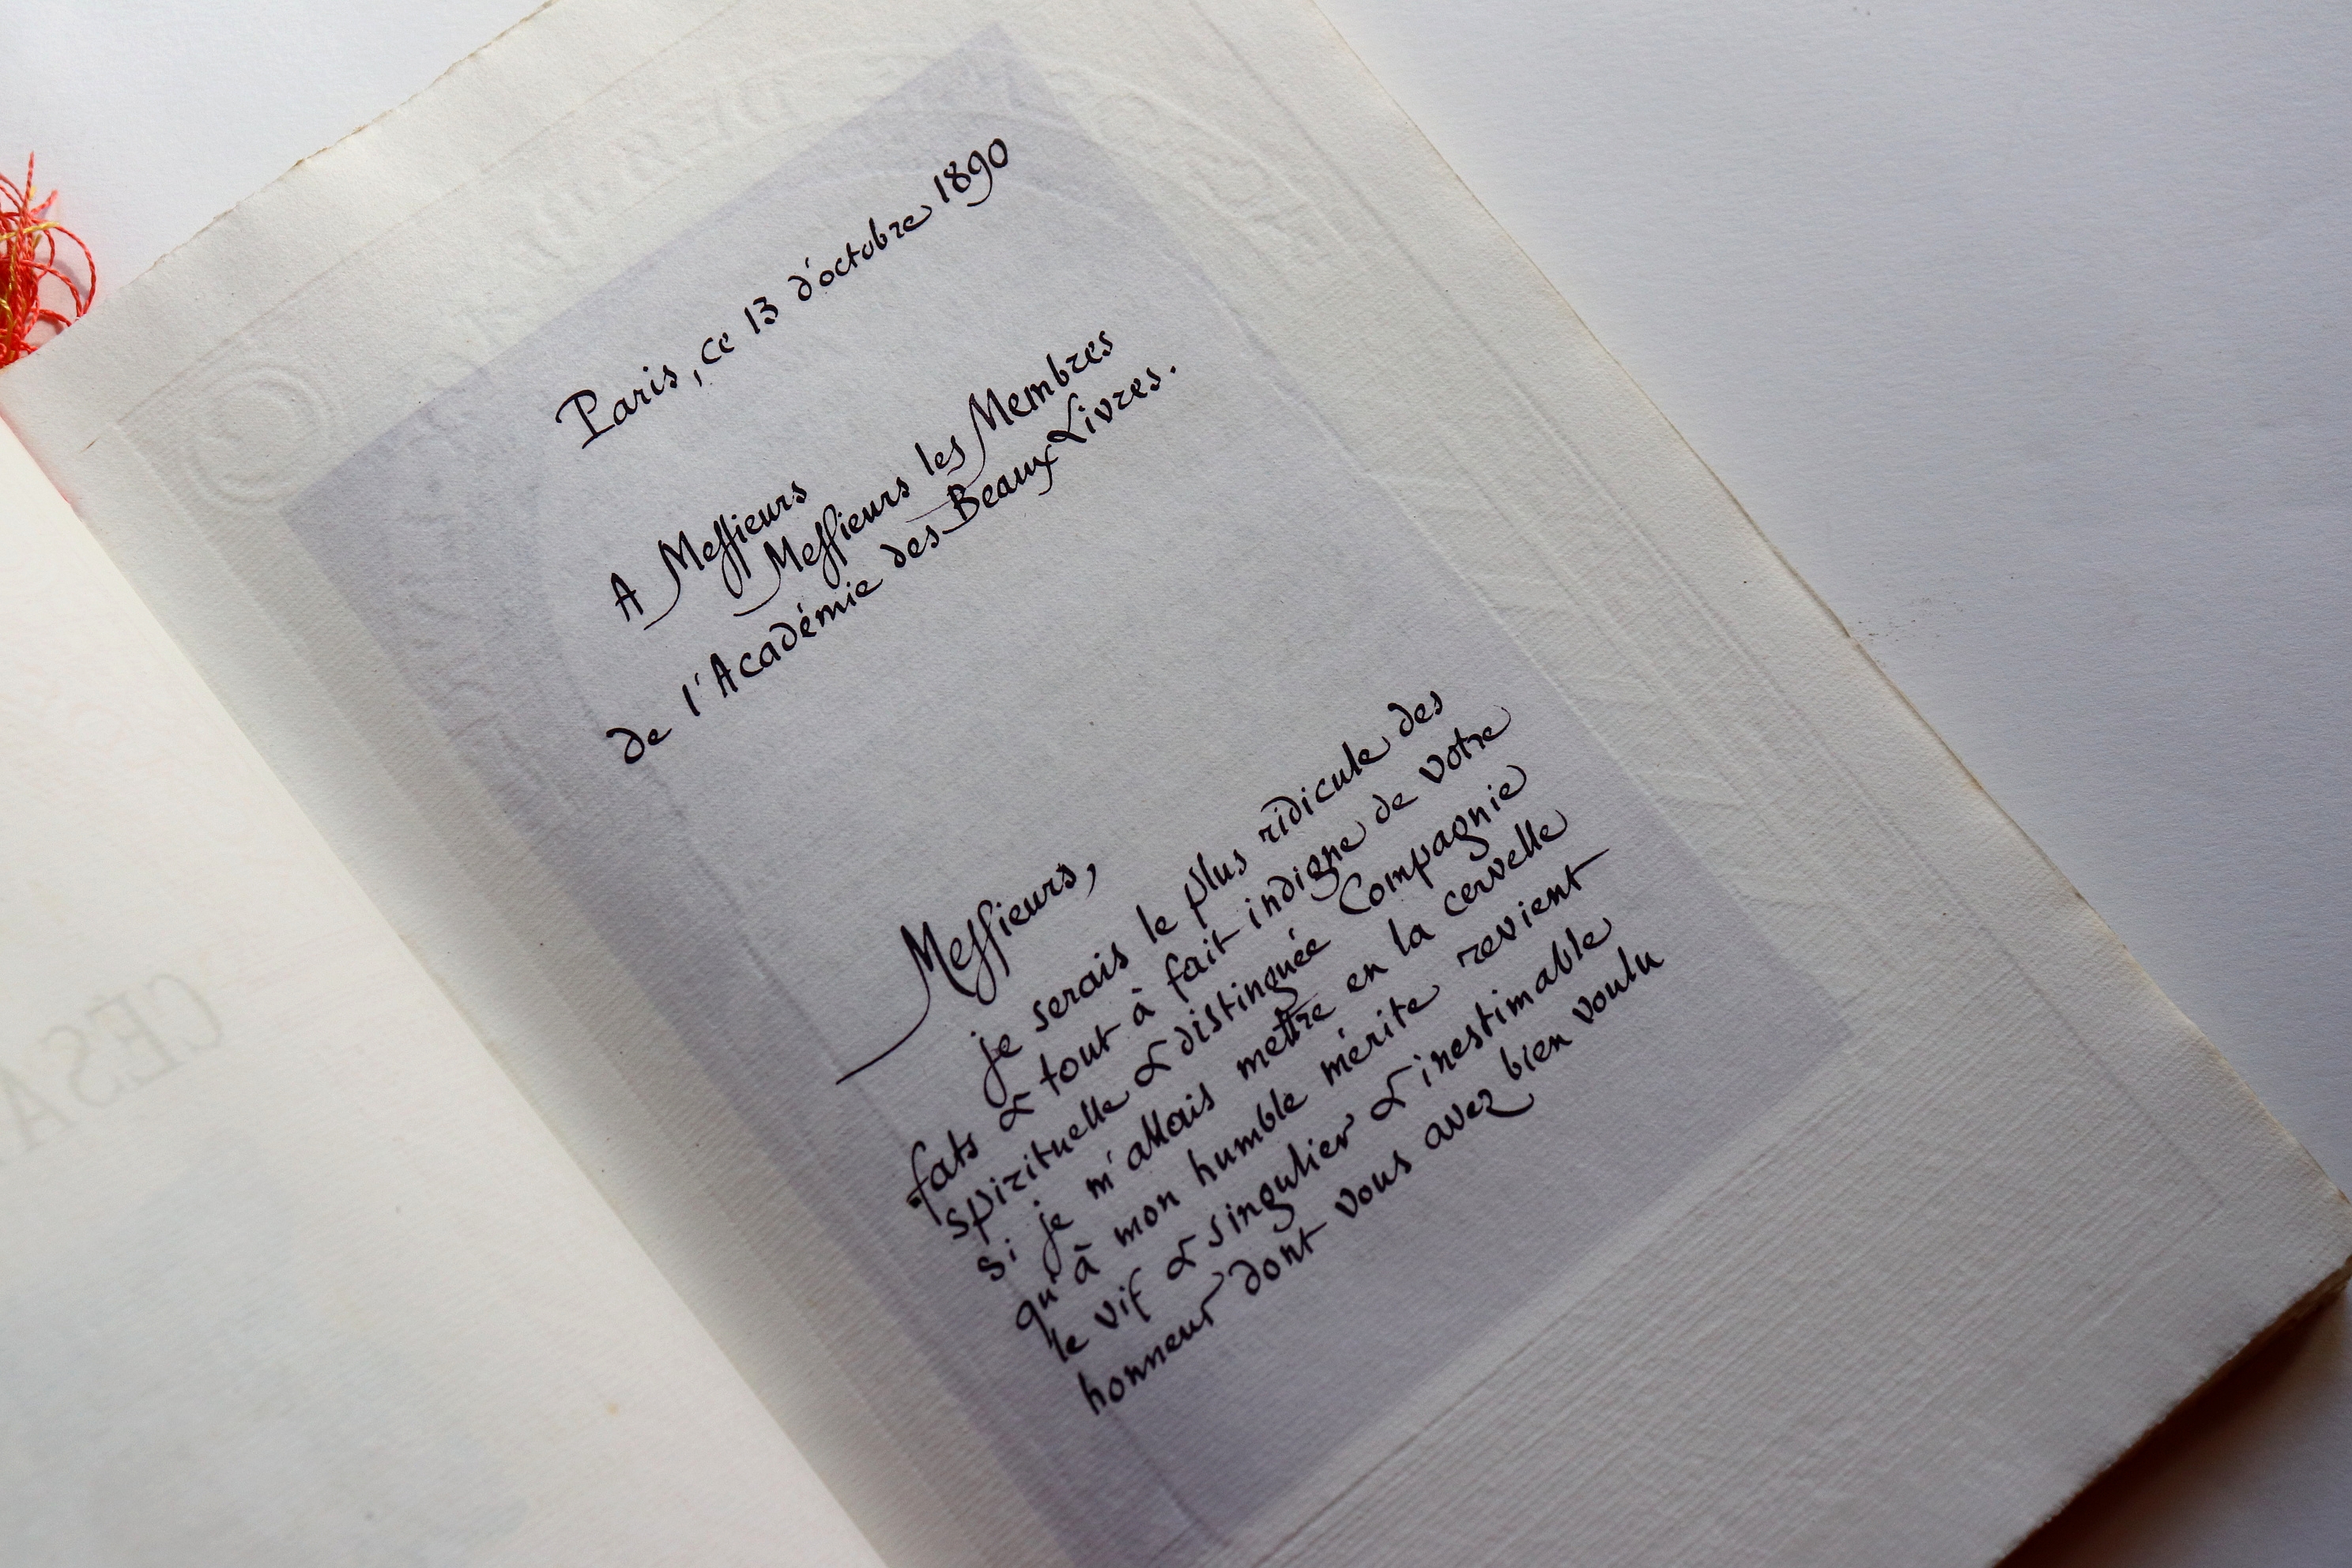 Paris, ce 13 d'octobre 1890
A Meſſieurs
Meſſieurs les Membres
de l'Académie des Beaux Livres.
Meſſieurs,
je serais le plus ridicule des
fats & tout à fait indigne de votre
spirituelle & distinguée Compagnie
si je m'allais mettre en la cervelle
qu'à mon humble mérite revient
le vif & singulier & inestimable
honneur dont vous avez bien voulu